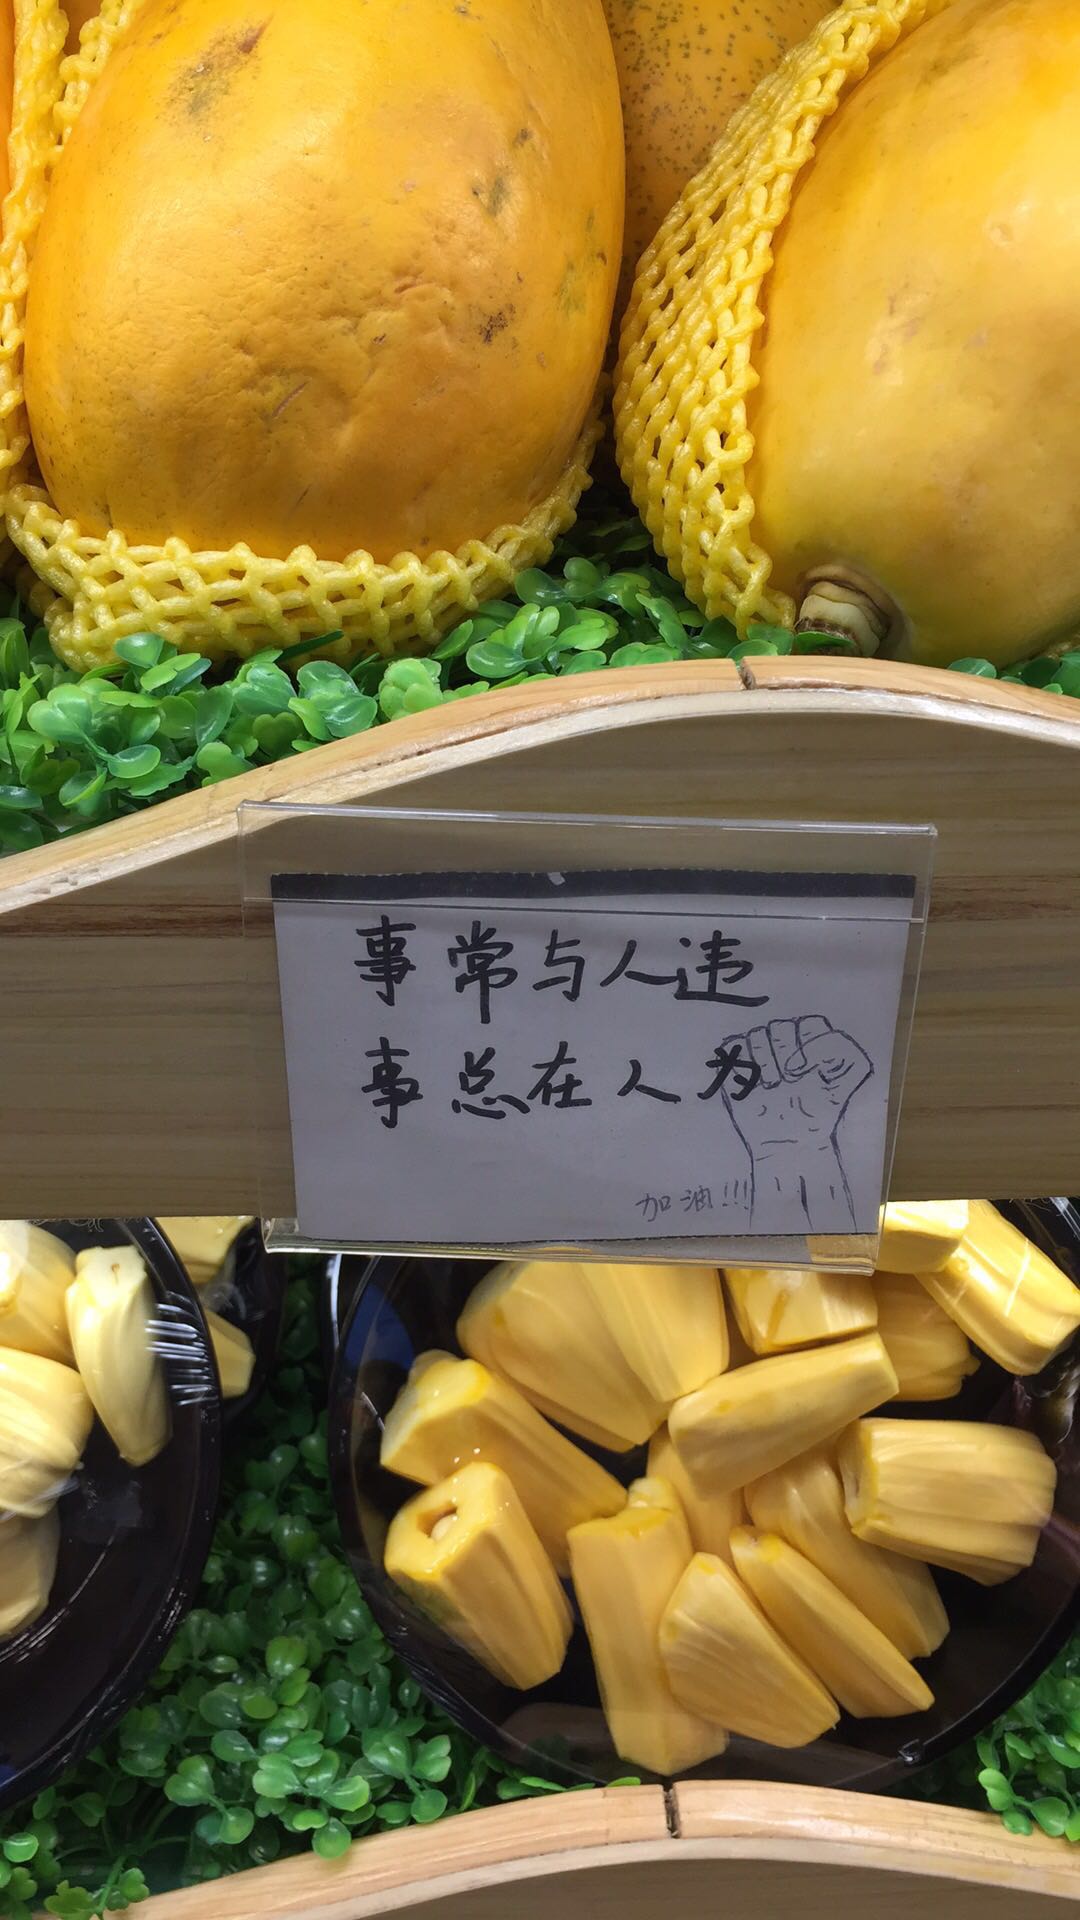 事常与人违
事总在人为
加油!!!